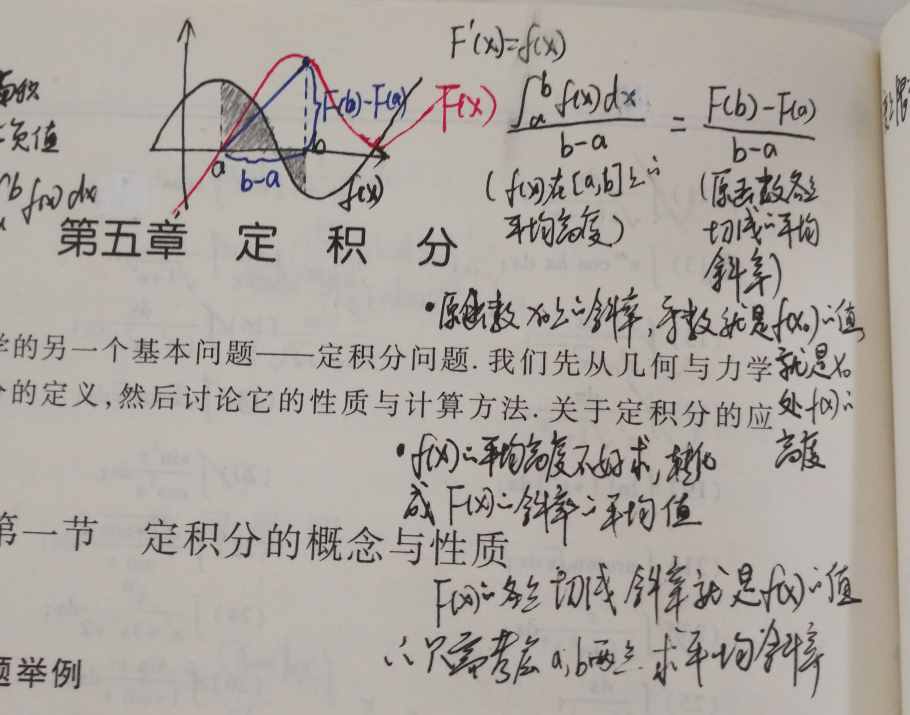 F'(x)=f(x)
面积
负值
∫ᵇ f(x) dx
F(b)-F(a)
F(x)
a
b
b-a
f(x)
∫ₐᵇ f(x) dx / (b-a) = (F(b)-F(a)) / (b-a)
(f(x)在[a,b]上的
平均高度)
(原函数各点
切线的平均
斜率)
第五章 定 积 分
·原函数x₀点的斜率,导数就是f(x₀)的值
就是x₀
处f(x)的
高度
学的另一个基本问题——定积分问题.我们先从几何与力学
的定义,然后讨论它的性质与计算方法.关于定积分的应
·f(x)的平均高度不好求,转化
成F(x)的斜率的平均值
第一节 定积分的概念与性质
F(x)的各点切线斜率就是f(x)的值
∴只需考虑a,b两点.求平均斜率
题举例